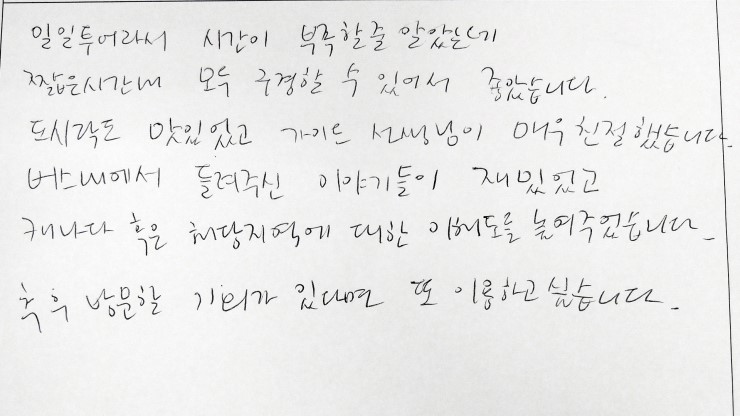 일일투어라서 시간이 부족할줄 알았는데
짧은시간내 모두 구경할 수 있어서 좋았습니다.
도시락도 맛있었고 가이드 선생님이 매우 친절했습니다.
버스내에서 들려주신 이야기들이 재밌었고
캐나다 혹은 해당지역에 대한 이해도를 높여주었습니다.
추후 방문할 기회가 있다면 또 이용하고 싶습니다.